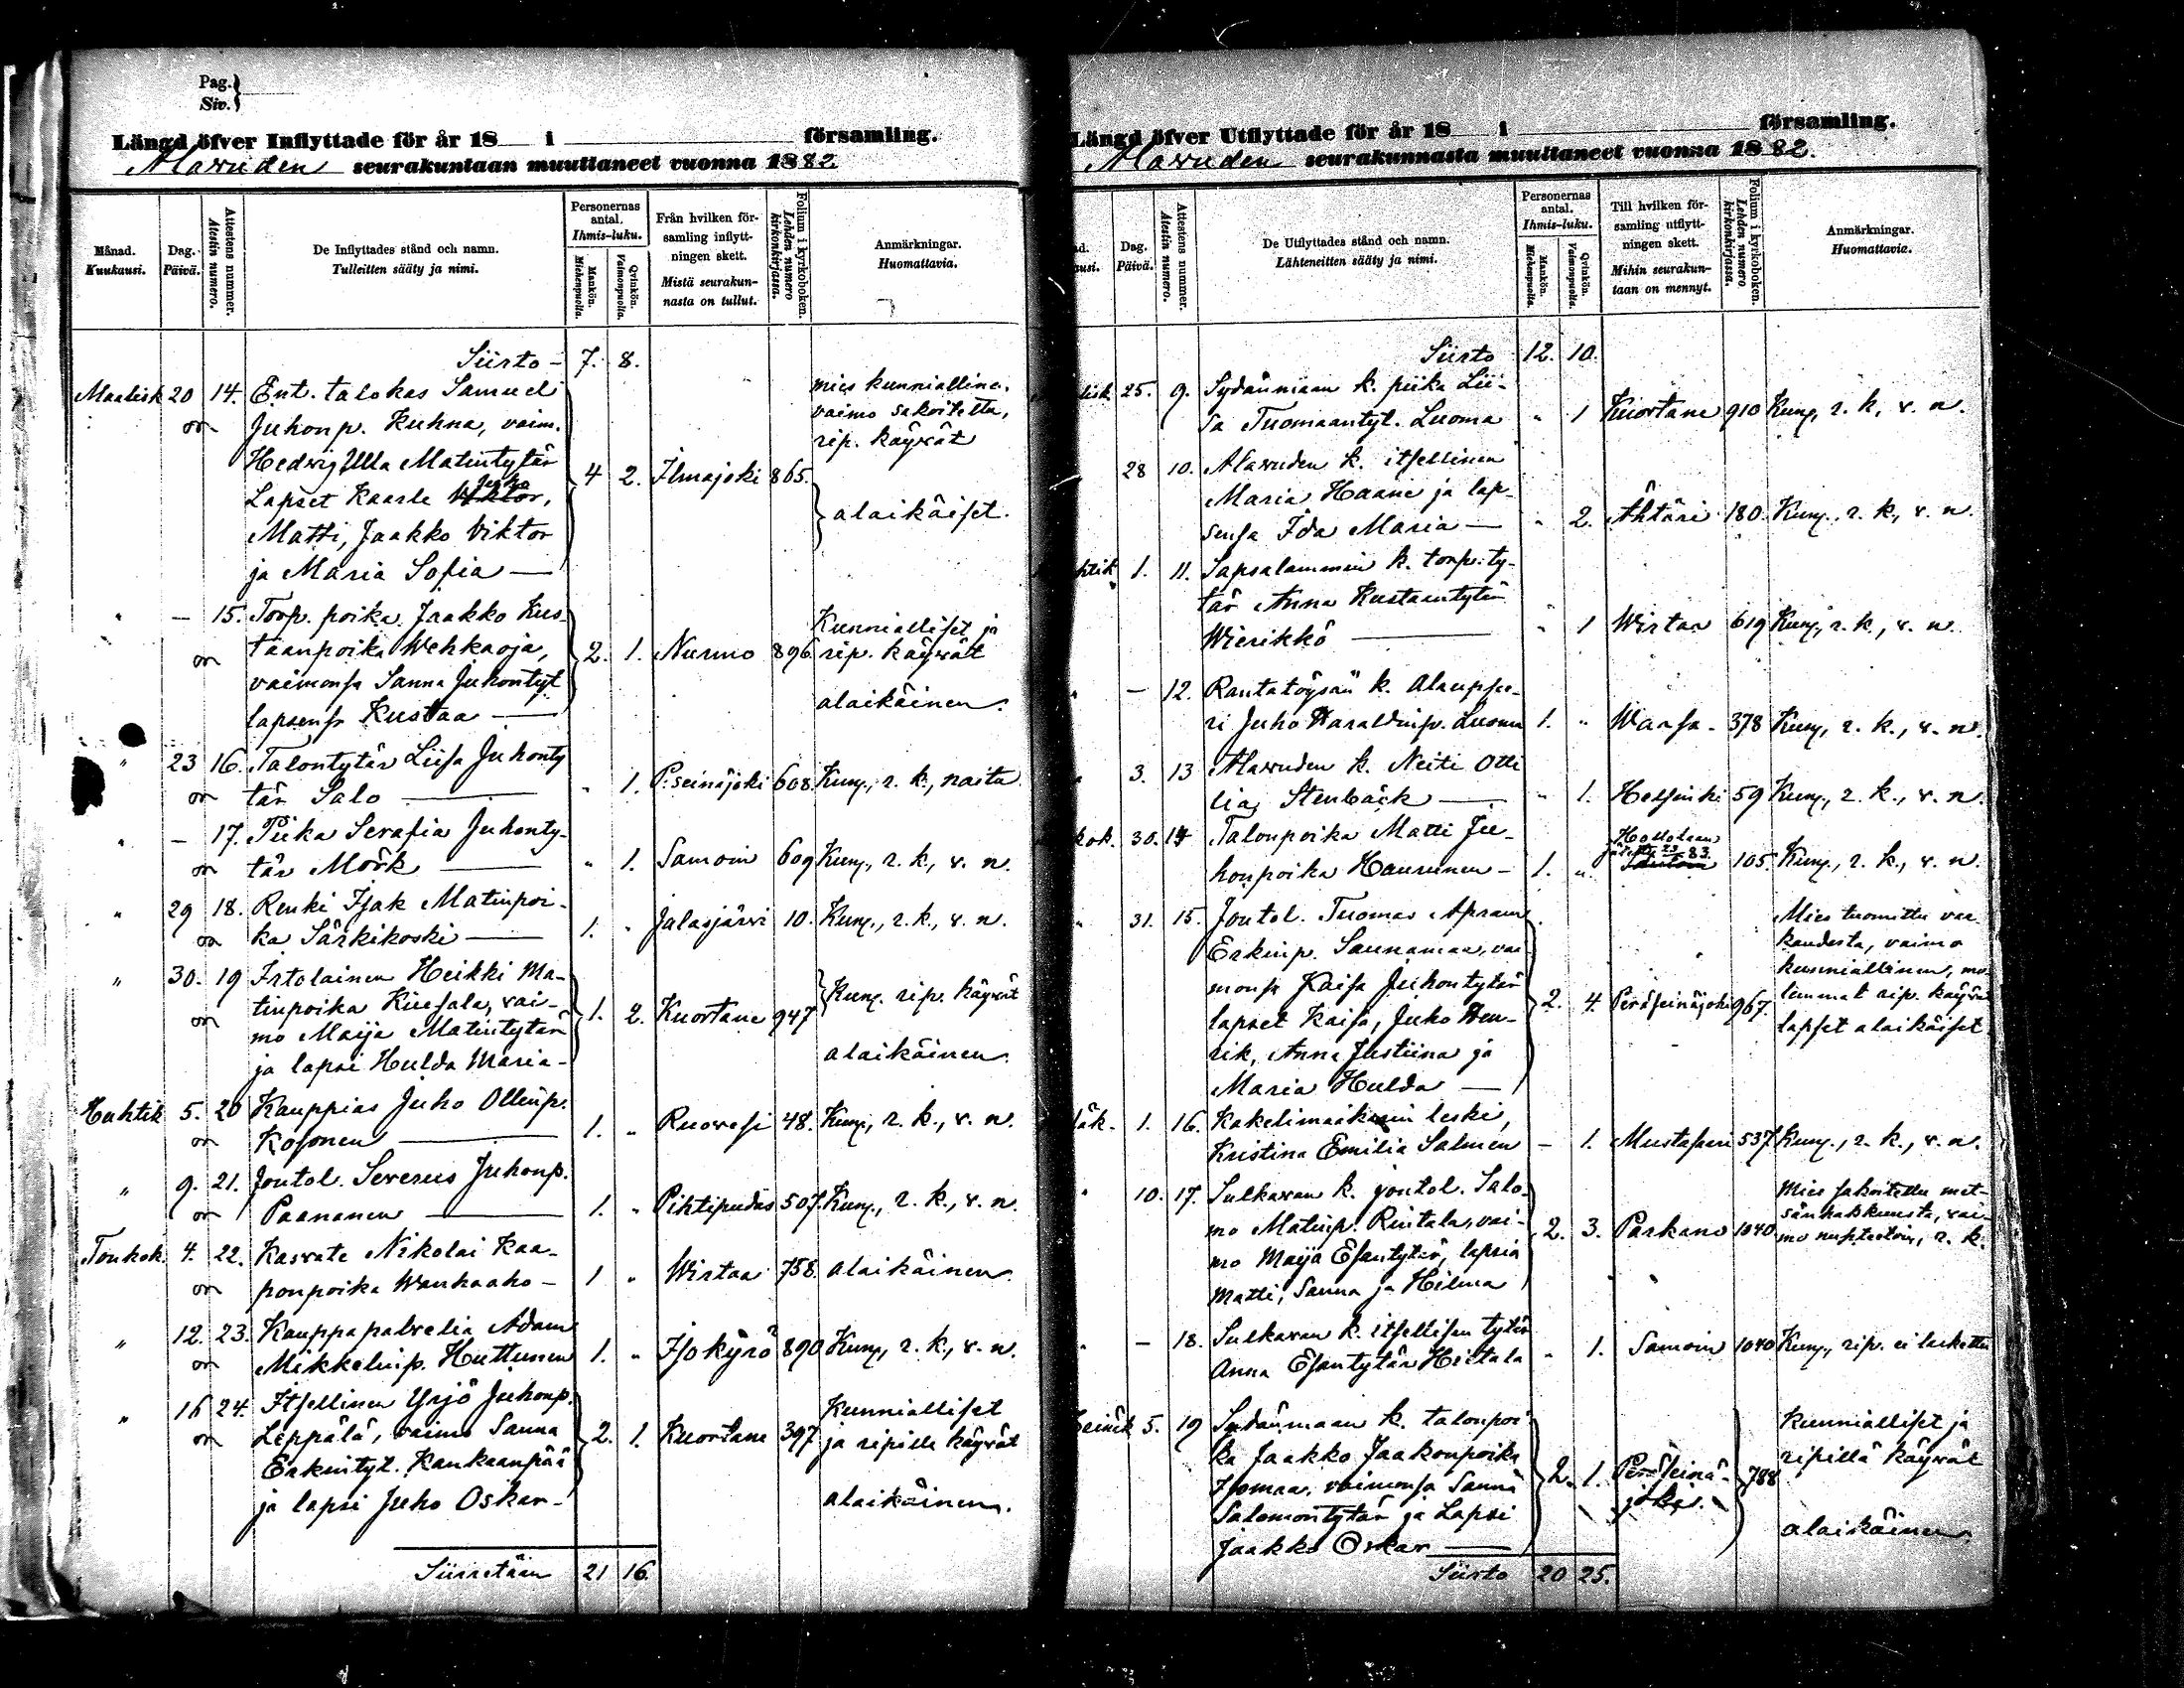 Pag.
Siv.
Längd öfver Inflyttade för år 18 i församling.
Alavuden seurakuntaan muuttaneet vuonna 1882.
Månad. Kuukausi.
Dag. Päivä.
Attestens nummer. Atestin numero.
De Inflyttades stånd och namn.
Tulleitten sääty ja nimi.
Personernas antal.
Ihmis-luku.
Mankön. Miehenpuolia.
Qvinkön. Vaimonpuolia.
Från hvilken församling inflyttningen skett.
Mistä seurakunnasta on tullut.
Folium i kyrkoboken.
Lehden numero kirkonkirjassa.
Anmärkningar.
Huomattavia.
Siirto - 7. 8.
Maalisk 20 14. Ent. talokas Samuel mies kunniallinen,
Juhonp. Kuhna, vaim. vaimo sakoitettu,
rip. käyvät
Hedvig Ulla Matintytär 4 2. Ilmajoki 865.
Lapset Kaarle Juho
Matti, Jaakko Viktor alaikäiset.
ja Maria Sofia —
" — 15. Torp. poika Jaakko Kus- Kunnialliset ja
taanpoika Wehkaoja, 2. 1. Nurmo 896. rip. käyvät
vaimonsa Sanna Juhontyt
lapsensa Kustaa — alaikäinen.
" 23 16. Talontytär Liisa Juhonty
tär Salo — " 1. P:seinäjoki 608. Kunn., r. k., naita
" — 17. Piika Serafia Juhonty-
tär Mörk — " 1. Samoin 609 Kunn., r. k., v. n.
" 29 18. Renki Isak Matinpoi-
ka Särkikoski — 1. " Jalasjärvi 10. Kunn., r. k., v. n.
" 30. 19 Irtolainen Heikki Ma-
tinpoika Kiesala, vai- 1. 2. Kuortane 947 Kunn. rip. käyvät
mo Maija Matintytär
ja lapsi Hulda Maria - alaikäinen.
Huhtik 5. 20 Kauppias Juho Ollinp.
Kosonen — 1. " Ruovesi 48. Kunn., r. k., v. n.
" 9. 21. Joutol. Severus Juhonp.
Paananen — 1. " Pihtipudas 507. Kunn., r. k., v. n.
Toukok. 4. 22. Kasvate Nikolai Kaa-
ponpoika Wanhaaho - 1 " Wirtaa 758. alaikäinen.
" 12. 23. Kauppapalvelia Adam
Mikkelinp. Huttunen 1. " Isokyrö 890 Kunn., r. k., v. n.
" 16 24. Itsellinen Yrjö Juhonp. Kunnialliset
Leppälä, vaimo Sanna 2. 1. Kuortane 397 ja ripillä käyvät
Erkintyt. Kankaanpää
ja lapsi Juho Oskar - alaikäinen.
Siirretään 21 16.
Längd öfver Utflyttade för år 18 i församling.
Alavuden seurakunnasta muuttaneet vuonna 1882.
Dag. Päivä.
Attestens nummer. Atestin numero.
De Utflyttades stånd och namn.
Lähteneitten sääty ja nimi.
Personernas antal.
Ihmis-luku.
Mankön. Miehenpuolia.
Qvinkön. Vaimonpuolia.
Till hvilken församling utflyttningen skett.
Mihin seurakuntaan on mennyt.
Folium i kyrkoboken.
Lehden numero kirkonkirjassa.
Anmärkningar.
Huomattavia.
Siirto 12. 10.
lisk 25. 9. Sydänmaan k. piika Lii-
sa Tuomaantyt. Luoma " 1 Kuortane 910 Kunn., r. k., v. n.
28 10. Alavuden k. itsellinen
Maria Haane ja lap-
sensa Ida Maria — " 2. Ähtäri 180. Kunn., r. k., v. n.
htik 1. 11. Sapsalammin k. torp. ty-
tär Anna Kustaantytär
Wierikkö — " 1 Wirtaa 619 Kunn., r. k., v. n.
" — 12. Rantatöysän k. alaupse-
ri Juho Haraldinp. Luoma 1. " Waasa - 378 Kunn., r. k., v. n.
" 3. 13 Alavuden k. Neiti Otti
lia Stenbäck — " 1. Helsinki 59 Kunn., r. k., v. n.
kok. 30. 14 Talonpoika Matti Ju- Hollolaan
honpoika Haurunen - 1. " 105. Kunn., r. k., v. n.
" 31. 15. Joutol. Tuomas Apram Mies tuomittu var-
Erkinp. Saunamaa, vai kaudesta, vaimo
monsa Kaisa Juhontytär kunniallinen, mo-
lapset Kaisa, Juho Hen- 2. 4. Peräseinäjoki 967. lemmat rip. käyvät
rik, Anna Justiina ja lapset alaikäiset
Maria Hulda —
äk. 1. 16. Kakelimaakarin leski,
Kristina Emilia Salmen — 1. Mustasaari 537 Kunn., r. k., v. n.
" 10. 17. Sulkavan k. joutol. Salo- Mies sakoitettu met-
mo Matinp. Rintala, vai- 2. 3. Parkano 1040.
mo Maija Esantytär, lapsia
Matti, Sanna ja Hilma
" — 18. Sulkavan k. itsellisen tytär
Anna Esantytär Hietala " 1. Samoin 1040 Kunn., rip. ei laskettu
Heinäk 5. 19 Sydänmaan k. talonpoi- kunnialliset ja
ka Jaakko Jaakonpoika 2. 1. Peräseinä- 788 ripillä käyvät
Isomaa, vaimonsa Sanna joki.
Salomontytär ja Lapsi
Jaakko Oskar — alaikäinen.
Siirto 20 25.